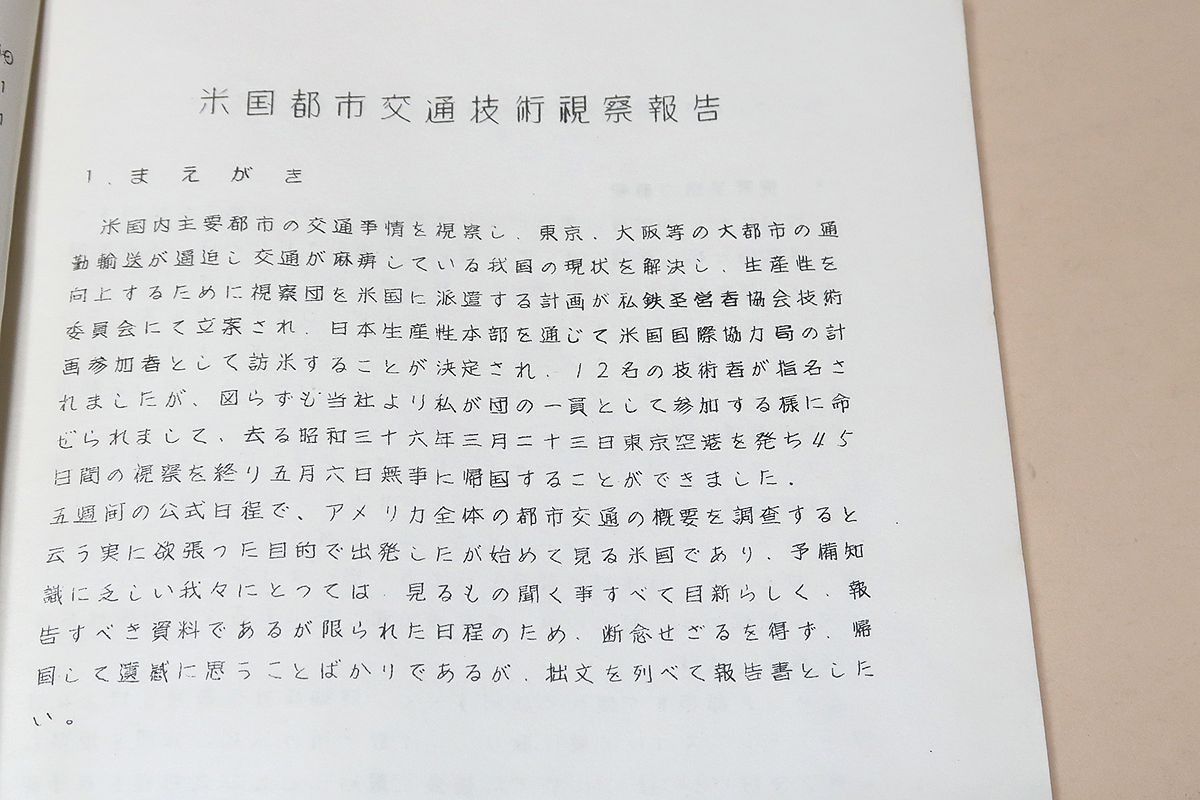 米国都市交通技術視察報告
1、まえがき
米国内主要都市の交通事情を視察し、東京、大阪等の大都市の通
勤輸送が逼迫し交通が麻痹している我国の現状を解決し、生産性を
向上するために視察団を米国に派遣する計画が私鉄経営者協会技術
委員会にて立案され、日本生産性本部を通じて米国国際協力局の計
画参加者として訪米することが決定され、12名の技術者が指名さ
れましたが、図らずも当社より私が団の一員として参加する様に命
ぜられまして、去る昭和三十六年三月二十三日東京空港を発ち45
日間の視察を終り五月六日無事に帰国することができました。
五週間の公式日程で、アメリカ全体の都市交通の概要を調査すると
云う実に欲張った目的で出発したが始めて見る米国であり、予備知
識に乏しい我々にとつては、見るもの聞く事すべて目新らしく、報
告すべき資料であるが限られた日程のため、断念せざるを得ず、帰
国して遺感に思うことばかりであるが、拙文を列べて報告書とした
い。